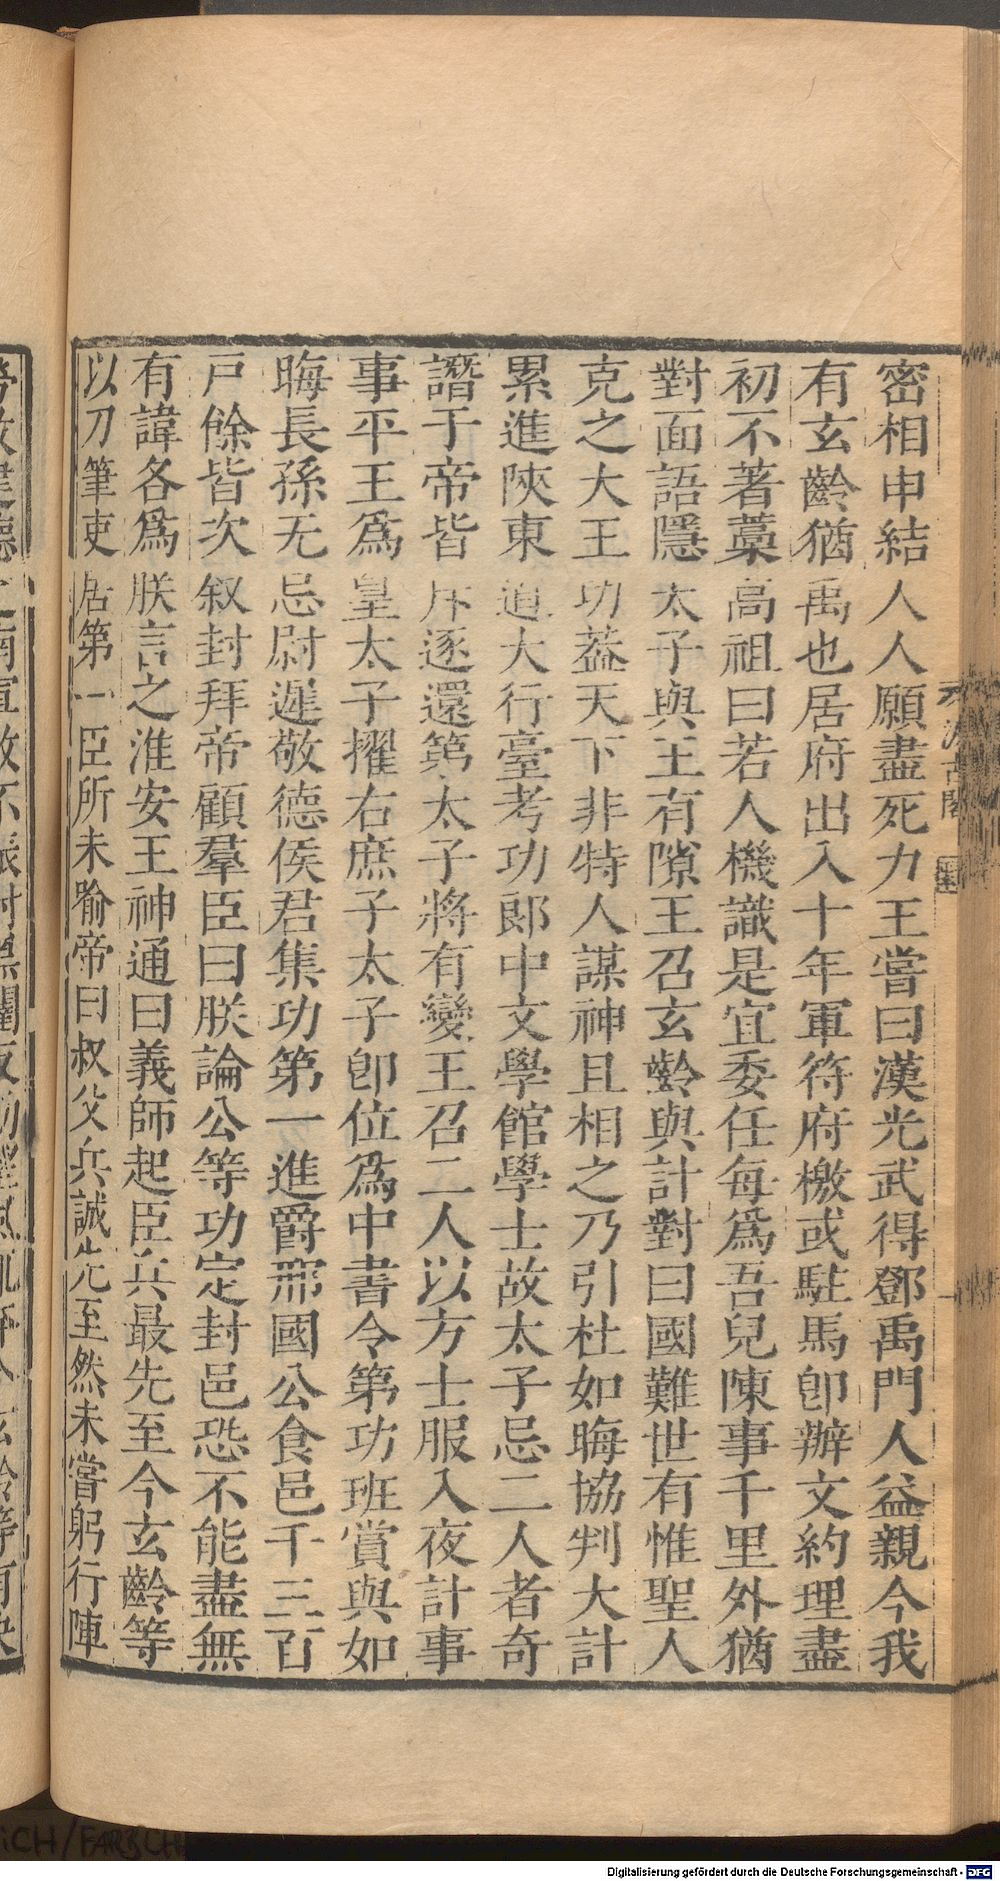 密相申結人人願盡死力王嘗曰漢光武得鄧禹門人益親今我
有玄齡猶禹也居府出入十年軍符府檄或駐馬卽辦文約理盡
初不著藁高祖曰若人機識是宜委任每爲吾兒陳事千里外猶
對面語隱太子與王有隙王召玄齡與計對曰國難世有惟聖人
克之大王功葢天下非特人謀神且相之乃引杜如晦協判大計
累進陝東道大行臺考功郎中文學館學士故太子忌二人者奇
譖于帝皆斥逐還第太子將有變王召二人以方士服入夜計事
事平王爲皇太子擢右庶子太子卽位爲中書令第功班賞與如
晦長孫无忌尉遲敬德侯君集功第一進爵邢國公食邑千三百
戸餘皆次叙封拜帝顧羣臣曰朕論公等功定封邑恐不能盡無
有諱各爲朕言之淮安王神通曰義師起臣兵最先至今玄齡等
以刀筆吏居第一臣所未喻帝曰叔父兵誠先至然未嘗躬行陣
汲古閣
Digitalisierung gefördert durch die Deutsche Forschungsgemeinschaft - DFG